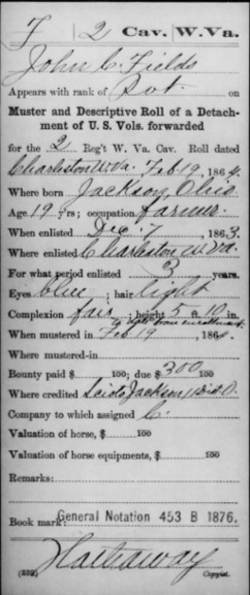 F 2 Cav. W.Va.
John C. Fields
Appears with rank of Pvt. on
Muster and Descriptive Roll of a Detach-
ment of U. S. Vols. forwarded
for the 2 Reg't W. Va. Cav. Roll dated
Charleston W Va. Feb 19, 1864.
Where born Jackson, Ohio
Age 19 y'rs; occupation farmer.
When enlisted Dec. 7, 1863.
Where enlisted Charleston W Va.
For what period enlisted 3 years.
Eyes blue; hair light
Complexion fair; height 5 ft. 10 in.
to date from enrollment
When mustered in Feb 19, 186
Where mustered-in
Bounty paid $ 100; due $ 300 100
Where credited Scioto, Jackson,
Company to which assigned C.
Valuation of horse, $ 100
Valuation of horse equipments, $ 100
Remarks:
Book mark: General Notation 453 B 1876.
Hathaway
Copyist.